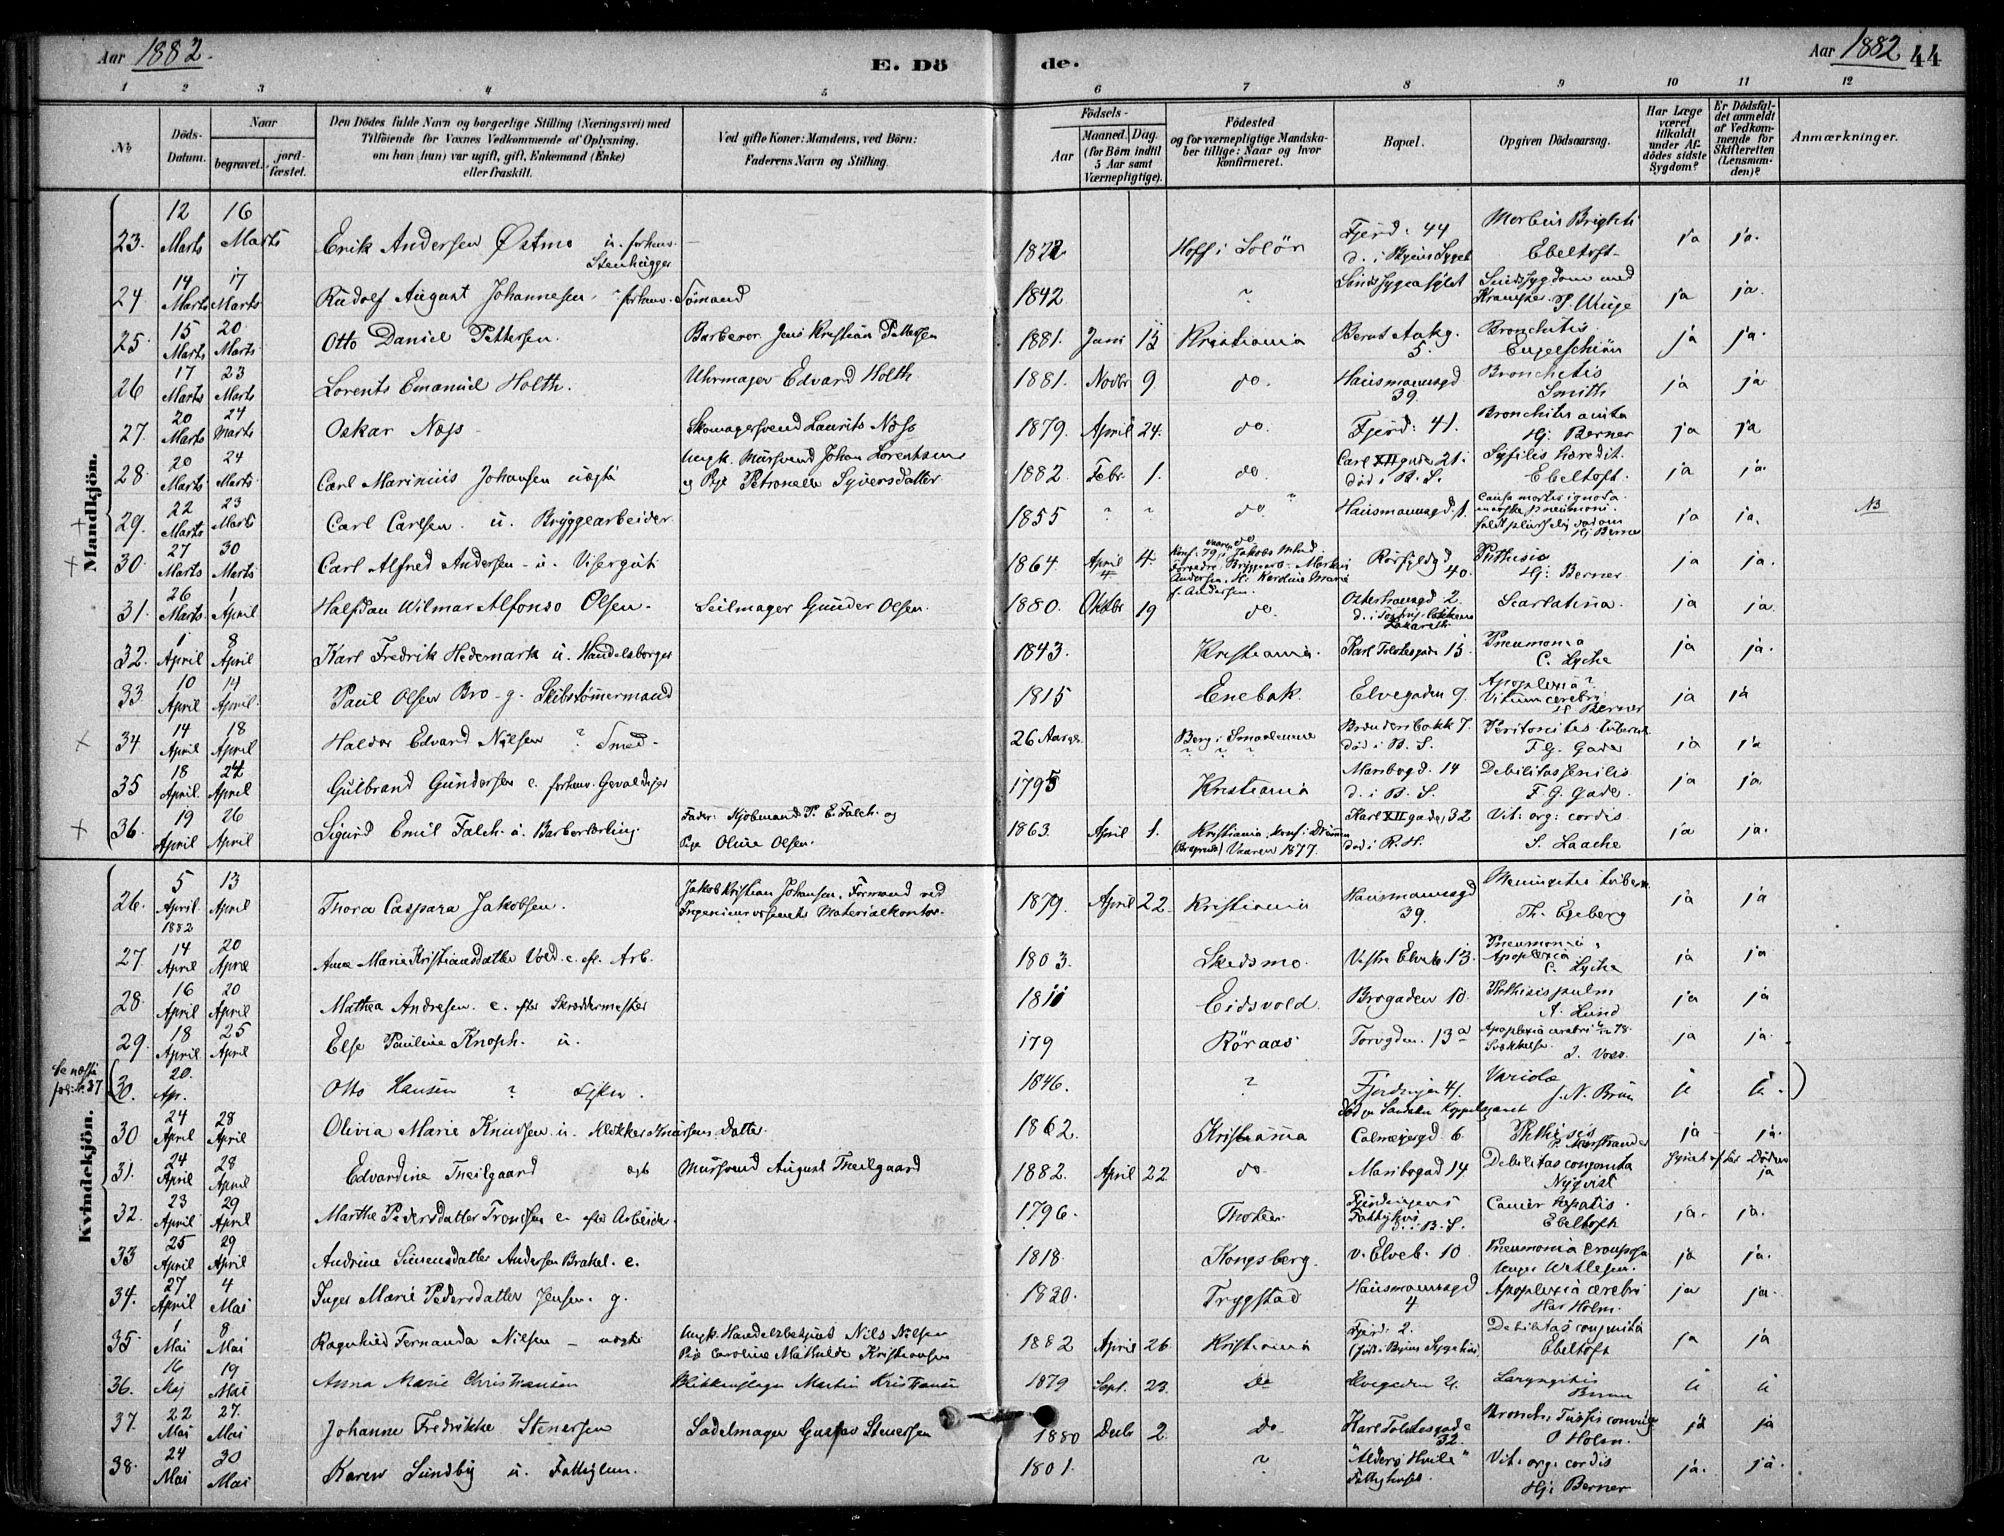 Aar 1882. E. Dö de. Aar 1882 44
1 2 3 4 5 6 7 8 9 10 11 12
No
Döds-Datum.
Naar
begravet. jord-fæstet.
Den Dödes fulde Navn og borgerlige Stilling (Næringsvei) med
Tilföiende for Voxnes Vedkommende af Oplysning,
om han (hun) var ugift, gift, Enkemand (Enke)
eller fraskilt.
Ved gifte Koner: Mandens, ved Börn:
Faderens Navn og Stilling.
Födsels-
Aar Maaned. Dag.
(for Börn indtil
5 Aar samt
Værnepligtige).
Födested
og for værnepligtige Mandska-
ber tillige: Naar og hvor
konfirmeret.
Bopæl.
Opgiven Dödsaarsag.
Har Læge
været
tilkaldt
under Af-
dödes sidste
Sygdom?
Er Dödsfal-
det anmeldt
af Vedkom-
mende for
Skifteretten
(Lensman-
den)?
Anmærkninger.
Mandkjön.
23. 12 Marts 16 Marts Erik Andersen Østmo u. forhenv. Stenhugger – 1822 Hoff i Solör Fjerd: 44 d. i Byens Syget Morbus Brighti Ebeltoft ja ja.
24 14 Marts 17 Marts Rudolf August Johannesen ? forhenv. Sömand 1842 ? Sindssygeasylet Sindssygdom med Kramper ja ja.
25. 15 Marts 20 Marts Otto Daniel Pettersen. Barberer Jens Kristian Pettersen 1881. Juni 15 Kristiania Bernt Ankg. 5. Bronchitis Engelschiön ja ja.
26 17 Marts 23 Marts Lorents Emanuel Holth. Uhrmager Edvard Holth 1881. Novbr 9 do. Hausmannsgd 39. Bronchitis Smith ja ja
27. 20 Marts 24 Marts Oskar Næss Skomagersvend Laurits Næss 1879. April 24. do. Fjerd: 41. Bronchitis acuta Hj. Berner ja ja
28. 20 Marts 24 Marts Carl Marinius Johansen uægte Ungk. Mursvend Johan Lorentsen og Pige Petronelle Syversdatter 1882. Febr. 1. do Carl XII gade 21. död i B. S. Syfilis hæredit. Ebeltoft. ja ja.
+ 29. 22 Marts 23 Marts Carl Carlsen. u. Bryggearbeider. 1855 ? ? do ? Hausmannsgd 1. Causa mortis ignota. maaske pneumoni. faldt pludselig död om Hj Berner ja ja. NB
× 30. 27 Marts 30 Marts Carl Alfred Andersen – u. Visergut 1864 April 4 4. do Konf. 79 vaaren i Jakobs M Andersen Rörfyldgd 40. Phthisis Hj: Berner. ja ja.
31. 26 Marts 1 April Halfdan Wilmar Alfonso Olsen. Seilmager Gunder Olsen. 1880. Oktbr 19 do. Osterhausgd 2 Lazareth Scarlatina. ja ja.
32. 1 April 8 April Karl Fredrik Hedemark u. Handelsborger 1843. Kristiania. Karl Tolvtesgade 15 Pneumonia C. Lyche ja ja.
33. 10 April 14 April. Paul Olsen Bro – g. Skibstömmermand 1815 Enebak Elvegaden 9. Apoplexia? Vitium cerebri Hj Berner ja ja
× 34. 14 April 18 April Haldor Edvard Nilsen ? Smed – 26 Aar gl. Berg i Smaalenene ? ? ? Brændersbakk 7. död i B. S. Peritonitis tubercul F. G. Gade ja ja
35 18 April. 24 April Gulbrand Gundersen e. forhenv. Gevaldiger 1795 Kristiania Maribogd. 14 d. i B. S. Debilitas senilis F. G. Gade. ja ja.
+ 36. 19 April 26 April Sigurd Emil Falch u. Barberlærling Fader: Kjöbmand P. E. Falch og Pige Oline Olsen. 1863. April 1. Kristiania, konf. i Drammen (Bragernæs) Vaaren 1877. Karl XII gade 32 död i R. H. Vit: org: cordis S. Laache ja ja.
Kvindekjön.
26. 5 April 1882 13 April Thora Caspara Jakobsen. Jakob Kristian Johansen, Formand ved Ingeniörvæsenets Materialkontor. 1879. April 22. Kristiania Hausmannsgd 39. Meningitis tuberc Th. Egeberg ja ja
27. 14 April 20 April Anne Marie Kristiansdatter Vold. e. eft. Arb. 1803. Skedsmo. Vestre Elveb. 13. Pneumonia, Apoplexia C. Lyche ja ja
28. 16 April 20 April Mathea Andresen e. efter Skreddermester 1811 Eidsvold Brogaden 10. Phthisis pulm A. Lund ja ja
29. 18 April. 25 April Else Pauline Knoph. u. 179 Röraas Torvgden. 13 a Apoplexia cerebri Svækkelse. J. Voss. ja ja.
(30. 20. Apr. Otto Hansen ? 1846. ? Fjerdingen 41. Variolæ J. N. Brun u u.)
30 24 April 28 April Olivia Marie Knudsen u. Klokker Knudsens Datter 1862. Kristiania Calmeyersgd 6. Phthisis ja ja.
31. 24 April 28 April Edvardine Theilgaard ægt Mursvend August Theilgaard 1882. April 22 do Maribogad 14. Debilitas congenita Nyqvist Synet efter Döden ja
32. 23 April 29 April Marthe Pedersdatter Trondsen e. efter Arbeider. 1796. Thoten Fjerdingens Fattighus B. S. Cancer hepatis. Ebeltoft ja. ja.
33 25 April 29 April Andrine Simensdatter Andersen Brakel. e. 1818. Kongsberg. v. Elveb. 10 Pneumonia crouposa ja ja.
34. 27 April 4 Mai Inger Marie Pedersdatter Jensen. g. 1820. Trygstad Hausmannsgd 4 Apoplexia cerebri Holm. ja ja.
35 1 Mai 8 Mai Ragnhild Fernanda Nilsen – uægte Ungk. Handelsbetjent Nils Nilsen Pige Caroline Mathilde Kristiansen 1882 April 26. Kristiania Fjerd: 2. (födt i Byens Sygehus) Debilitas congenita Ebeltoft ja ja
36. 16 Maj 19 Mai Anna Marie Christiansen Blikkenslager Martin Kristiansen 1879 Sept. 23. do Elvegaden 4. Laryngitis Brun u u
37. 22 Mai 27. Mai Johanne Fredrikke Stenersen Sadelmager Gustav Stenersen 1880 Decbr 2. do Karl Tolvtesgade 32. Bronch: Tussis convuls O Holm. ja ja
38. 24 Mai 30 Mai Karen Sundby u. Fattiglem. 1801. ? "Alders Hvile" Fattighuset. Vit: org: cordis Hj: Berner ja. ja.